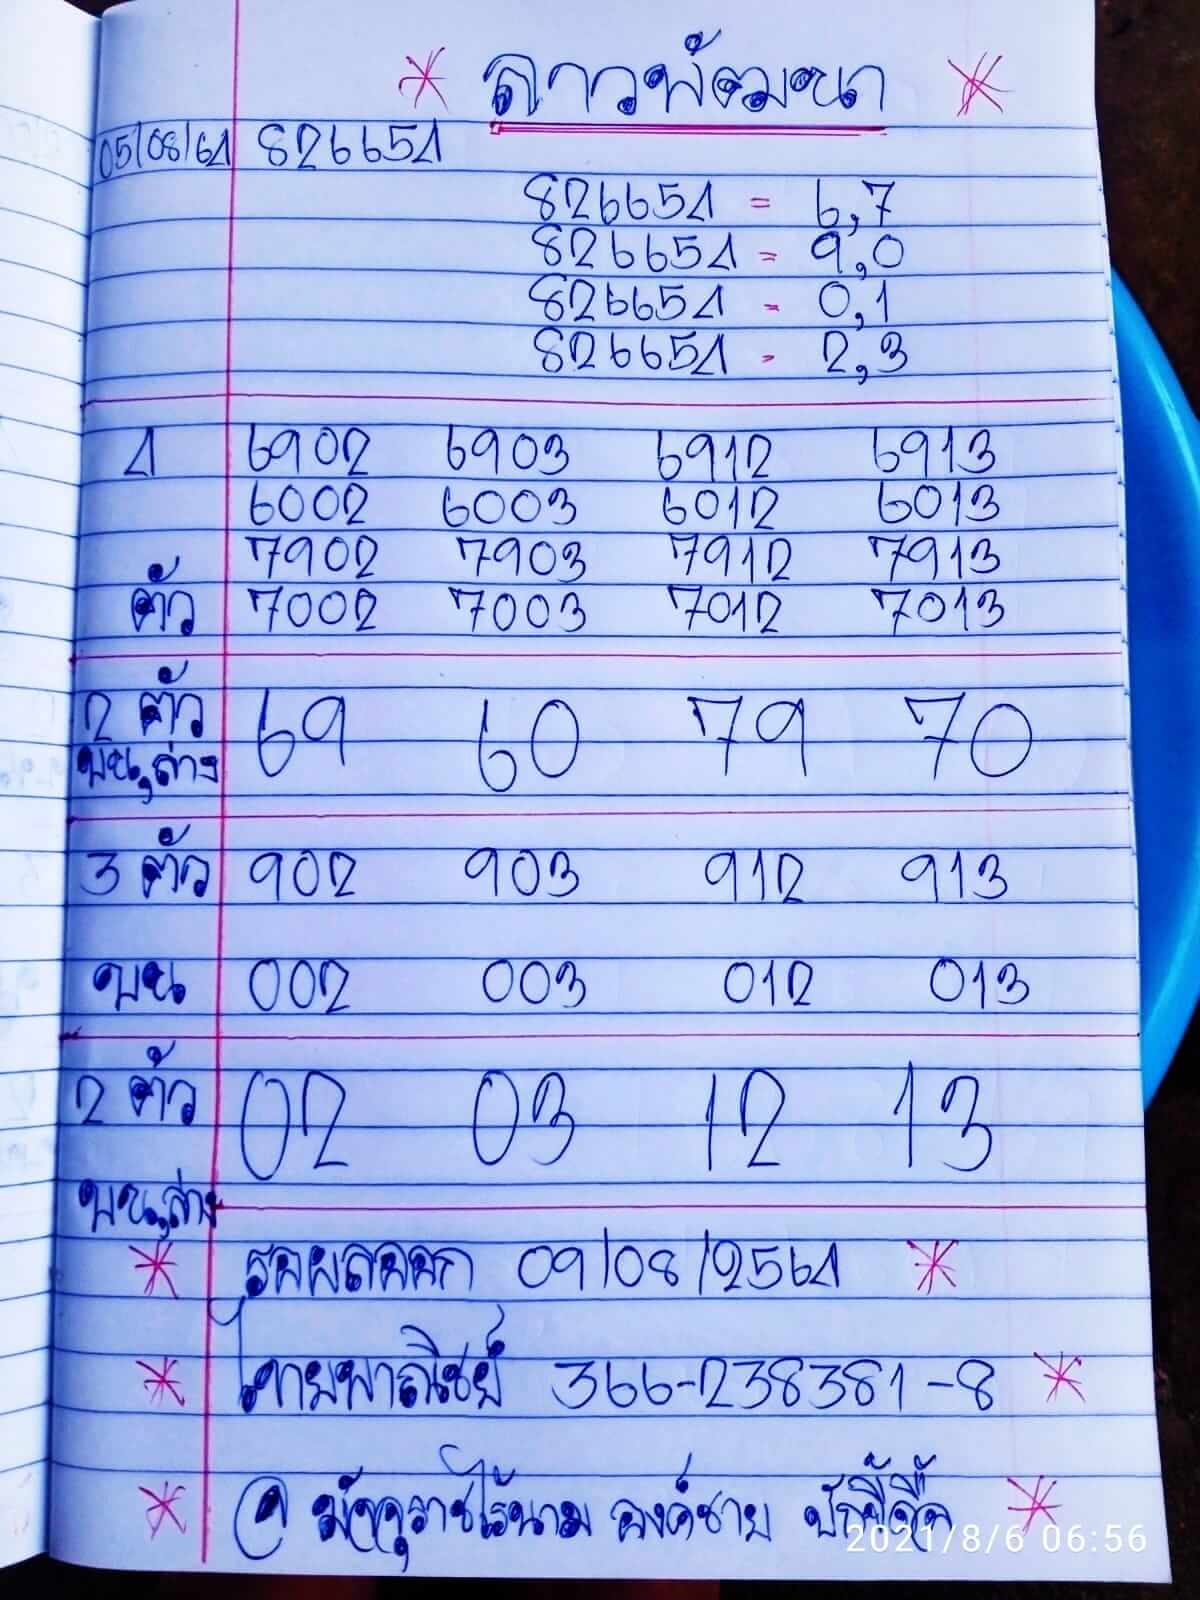 ลาวพัฒนา
05/08/64 826654
826654 = 6,7
826654 = 9,0
826654 = 0,1
826654 = 2,3
4 6902 6903 6912 6913
6002 6003 6012 6013
7902 7903 7912 7913
ตัว 7002 7003 7012 7013
2 ตัว 69 60 79 70
บน,ล่าง
3 ตัว 902 903 912 913
บน 002 003 012 013
2 ตัว 02 03 12 13
บน,ล่าง
รอผลออก 09/08/2564
ไทยพาณิชย์ 366-238381-8
มัจจุราชไร้นาม องค์ชาย
2021/8/6 06:56